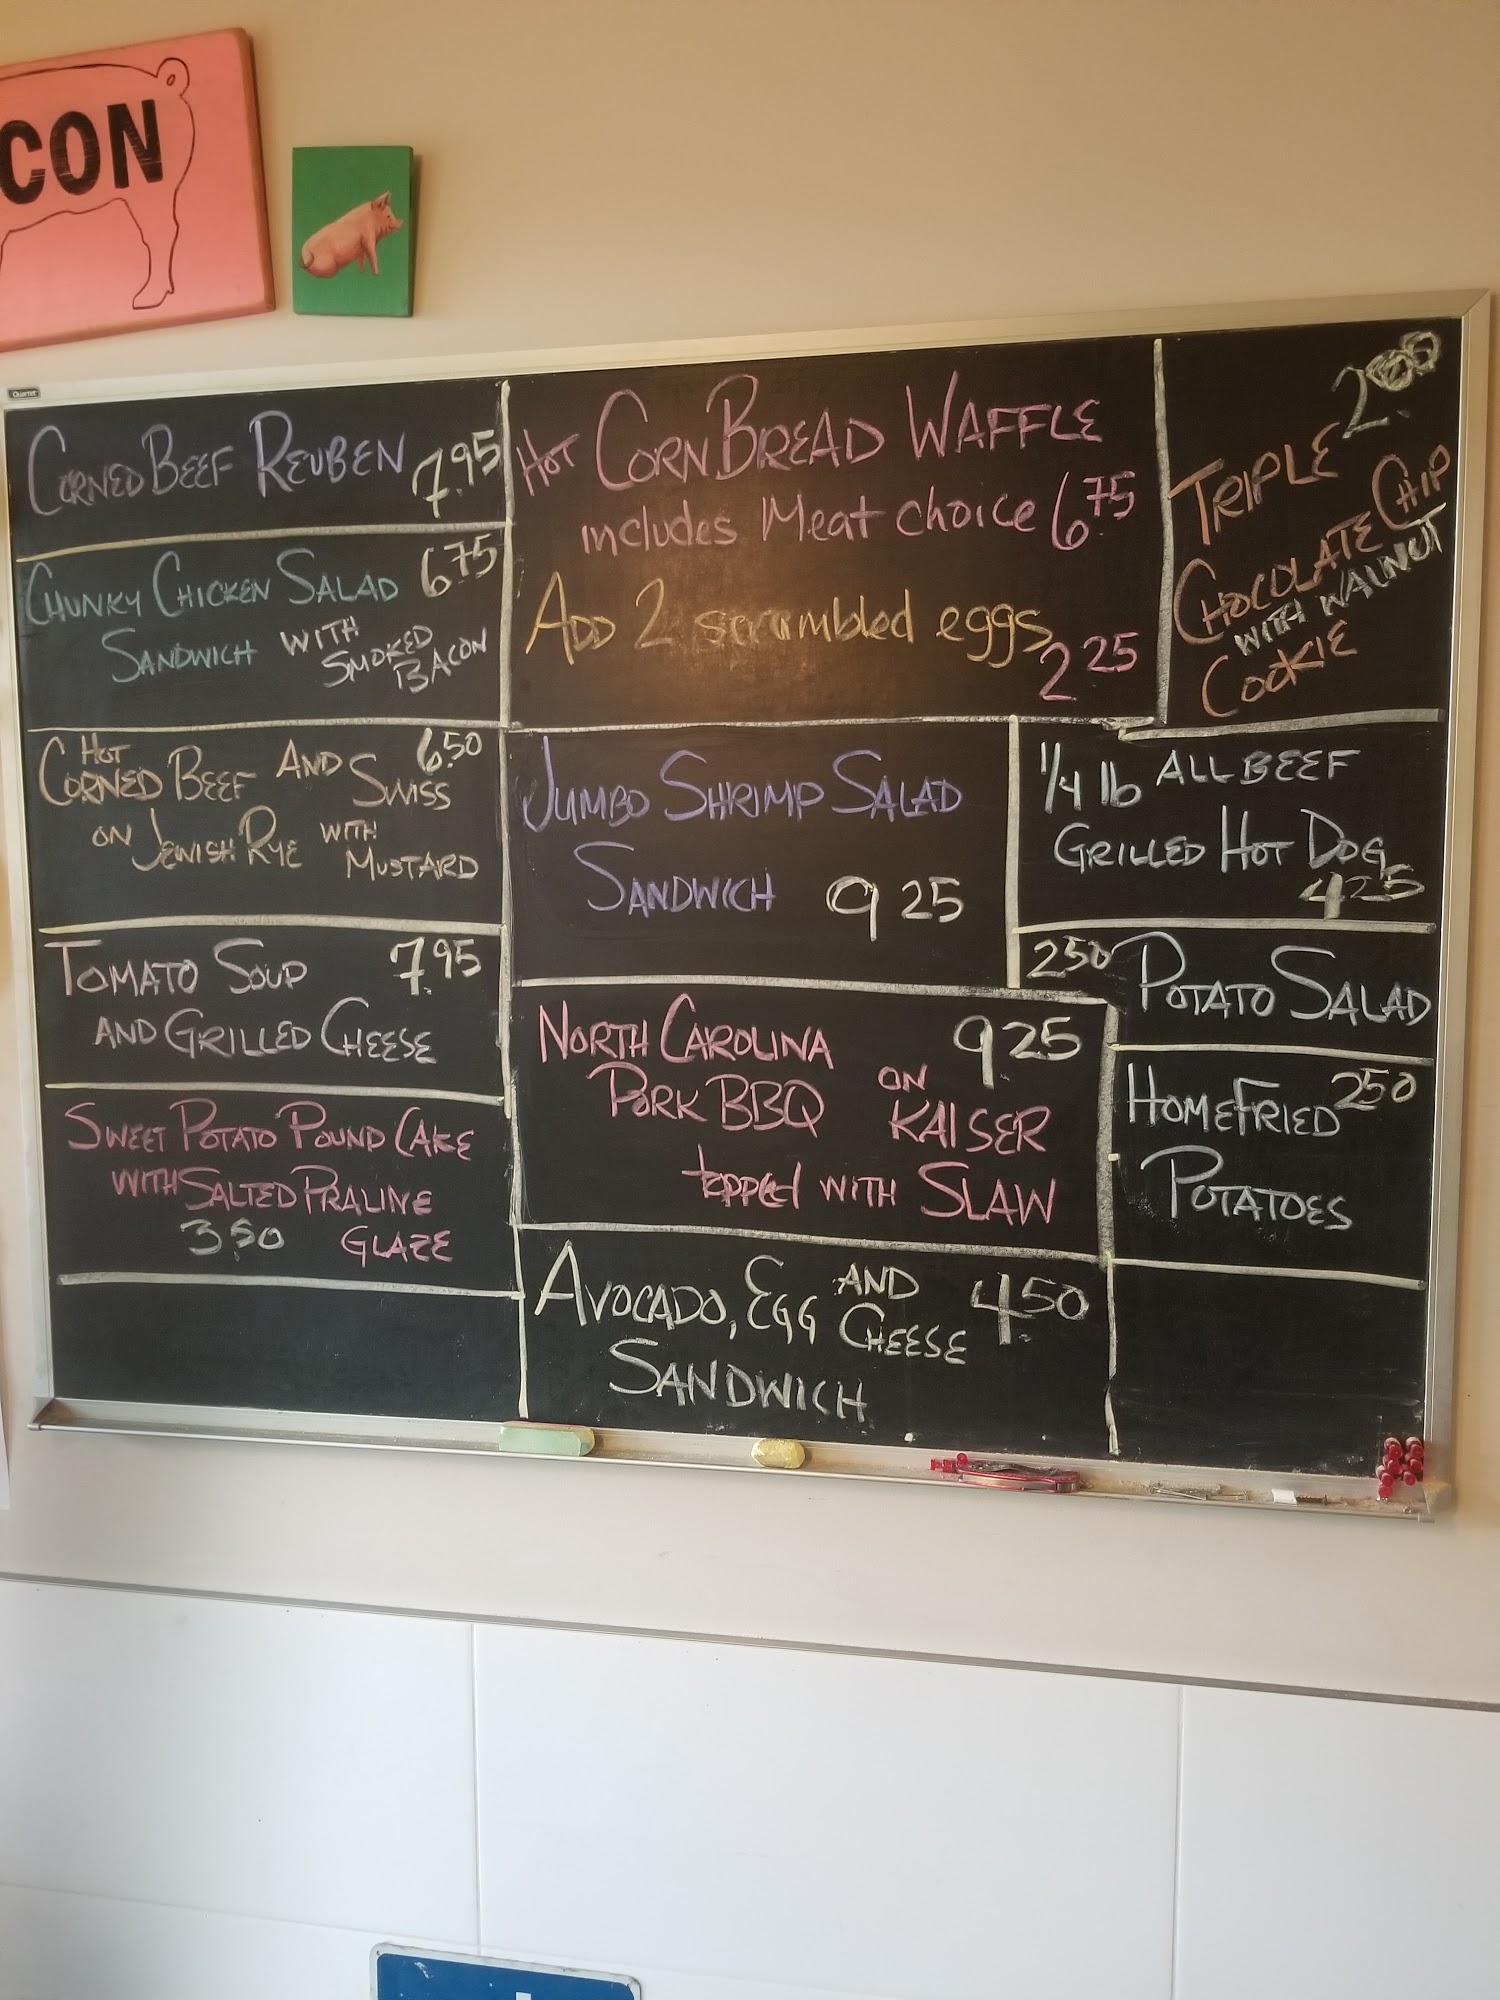 CON
Quartet
CORNED BEEF REUBEN 7.95
CHUNKY CHICKEN SALAD 6.75
SANDWICH WITH SMOKED BACON
HOT CORNED BEEF AND SWISS 6.50
ON JEWISH RYE WITH MUSTARD
TOMATO SOUP 7.95
AND GRILLED CHEESE
SWEET POTATO POUND CAKE
WITH SALTED PRALINE
3.50 GLAZE
HOT CORN BREAD WAFFLE
includes Meat choice 6.75
ADD 2 scrambled eggs
2 25
JUMBO SHRIMP SALAD
SANDWICH 9 25
NORTH CAROLINA 9.25
PORK BBQ ON KAISER
topped WITH SLAW
AVOCADO, EGG AND CHEESE 4.50
SANDWICH
TRIPLE
CHOCOLATE CHIP
WITH WALNUT
COOKIE
1/4 lb ALL BEEF
GRILLED HOT DOG
4.25
2.50 POTATO SALAD
HOMEFRIED 2.50
POTATOES